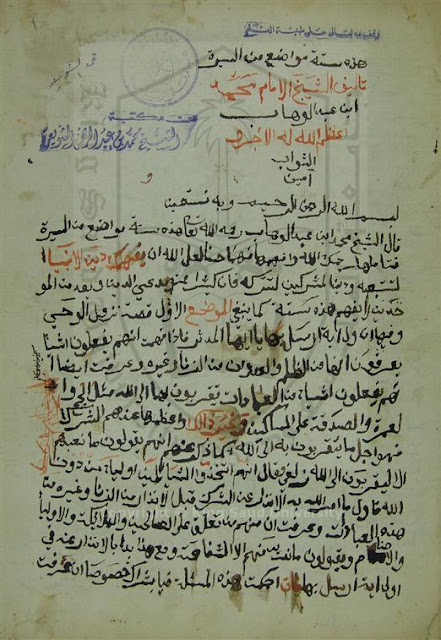 وقف وجه الله تعالى على طلبة العلم
هذه ستة مواضع من السيرة
تاليف الشيخ الامام محمد
ابن عبد الوهاب
اعظم الله له الاجر و
الثواب
امين
من مكتبة
الشيخ محمد بن عبد الرحمن الشويعر
بسم الله الرحمن الرحيم وبه نستعين
قال الشيخ محمد ابن عبد الوهاب رحمه الله تعالى هذه ستة مواضع من السيرة
فتاملها رحمك الله وافهمها فهما حسنا لعل الله ان يفهمك دين الانبيا
لتتبعه ودين المشركين لتتركه فان كثيرا ممن يدعي الدين ويعد من المو
حدين لا يفهم هذه الستة كما ينبغي الموضع الاول قصة نزول الوحي
وفيها ان اول اية ارسل بها يا ايها المدثر فاذا فهمت انهم يفعلون اشيا
يعرفون انها من الظلم والعدوان من الزنا وغيره وعرفت ايضا ا
نهم يفعلون اشياء من العبادات يتقربون بها الى الله مثل الحج وا
لعمرة والصدقة على المساكين وغير ذالك واعظمها عندهم الشرك
فهو اجل ما يتقربون به الى الله كما ذكر عنهم انهم يقولون ما نعبدهم
الا ليقربونا الى الله زلفى وقال انهم اتخذوا الشياطين اولياء من دون
الله فاول ما امر الله به الانذار عن الشرك قبل الانذار من الزنا وغيره من
هذه العبادات وعرفت ان منهم من تعلق على الصالحين والملايكة والاوليا
والاصنام ويقولون ما نريد منهم الا شفاعة ومع هذا بدا بالانذار عنه في
اول اية ارسل بها فان احكمت هذه المسئلة فيا بشراك خصوصا ان عرفت